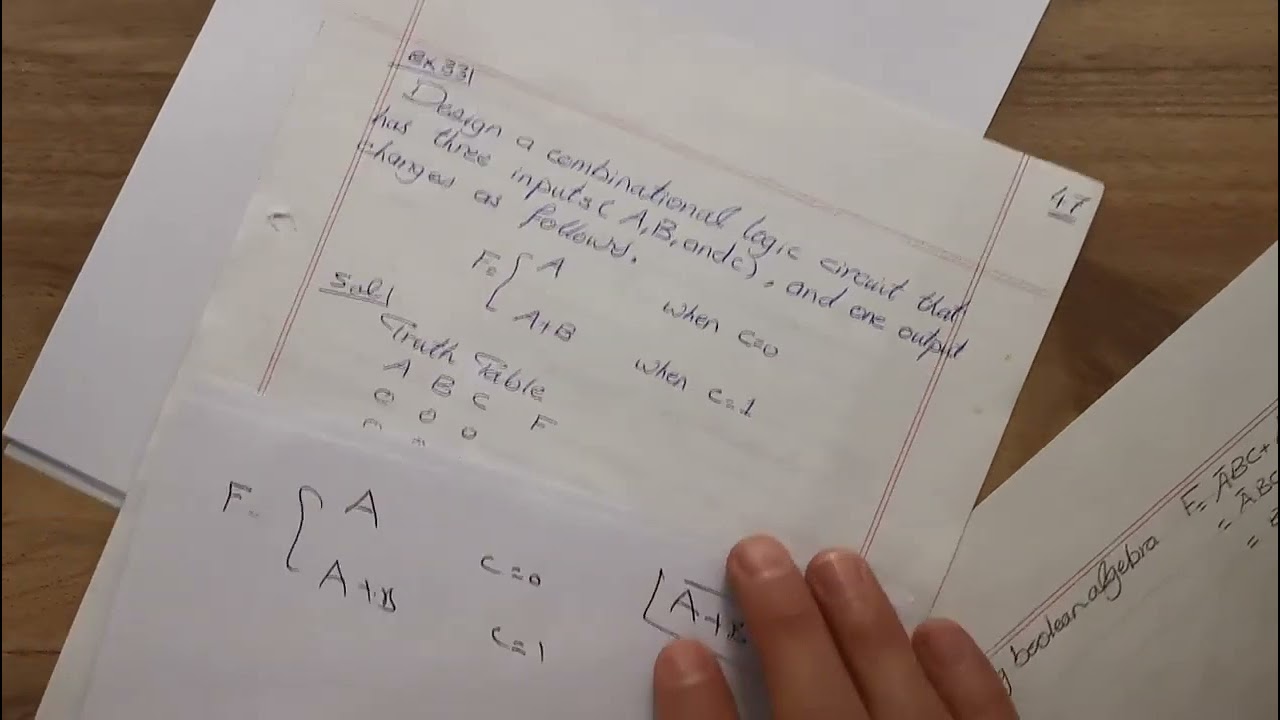 ex 331
47
Design a combinational logic circuit that
has three inputs ( A, B, and c), and one output
changes as follows.
F= { A when c=0
A+B when c=1
Sol
Truth Table
A B C F
0 0 0
F= { A c=0
A+B c=1
[ A+B
F= ĀBC+
= ĀBC
=
boolean algebra